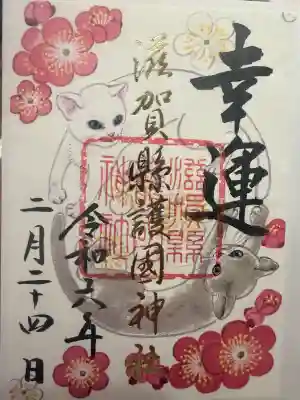 幸運
滋賀縣護國神社
滋賀縣
護國
神社
令和六年
二月二十四日